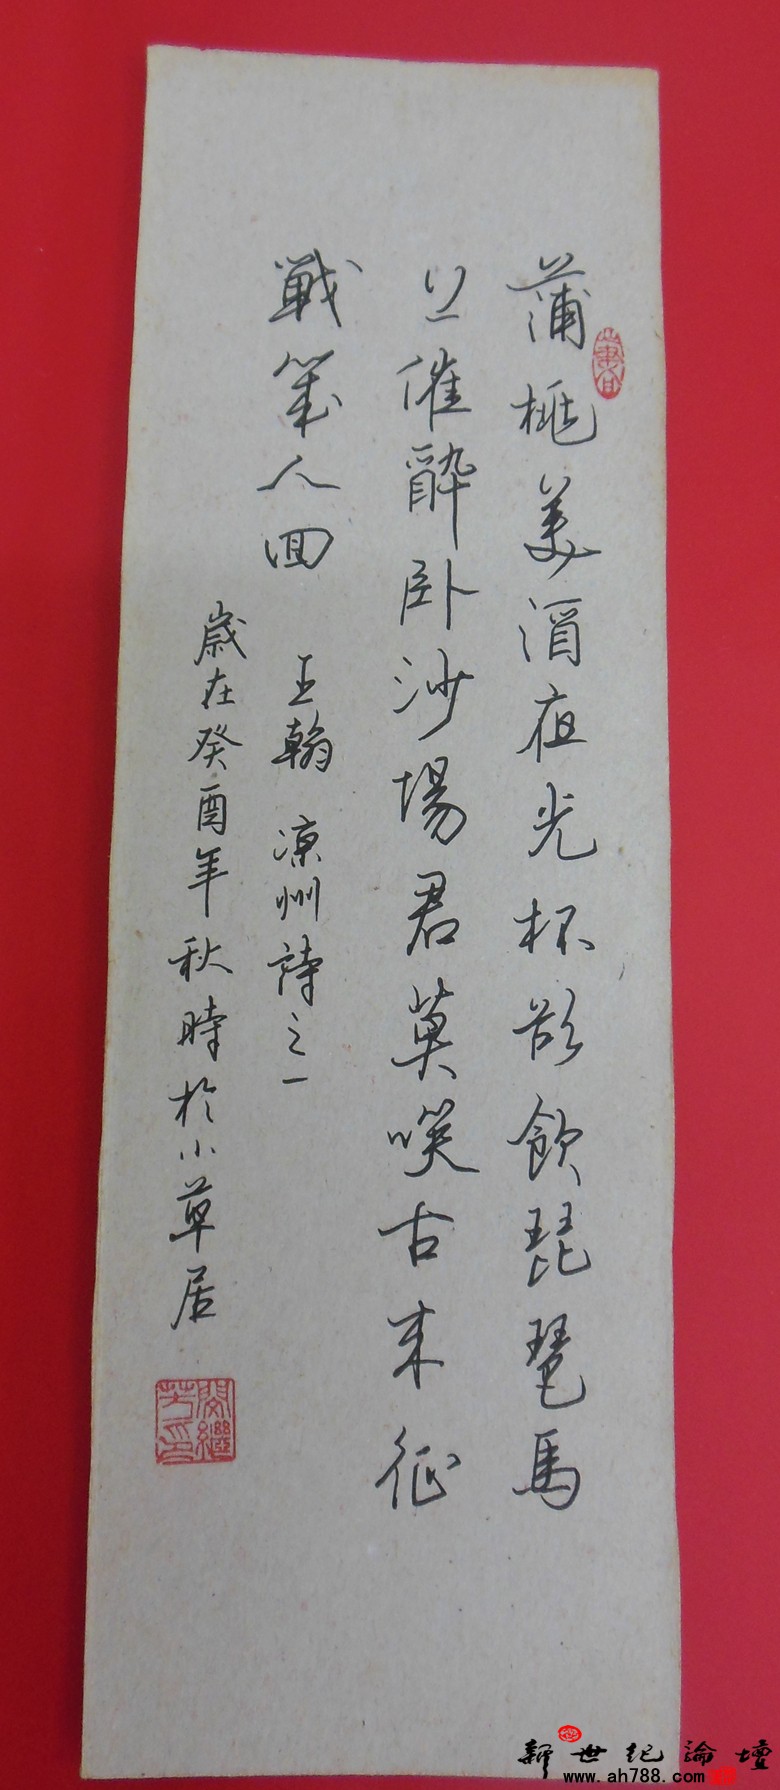 蒲桃美酒夜光杯欲飲琵琶馬
上催醉卧沙場君莫笑古来征
戰幾人回
王翰 凉州詩之一
歲在癸酉年秋時於小草居
閔繼芳印
新世紀論壇
www.ah788.com